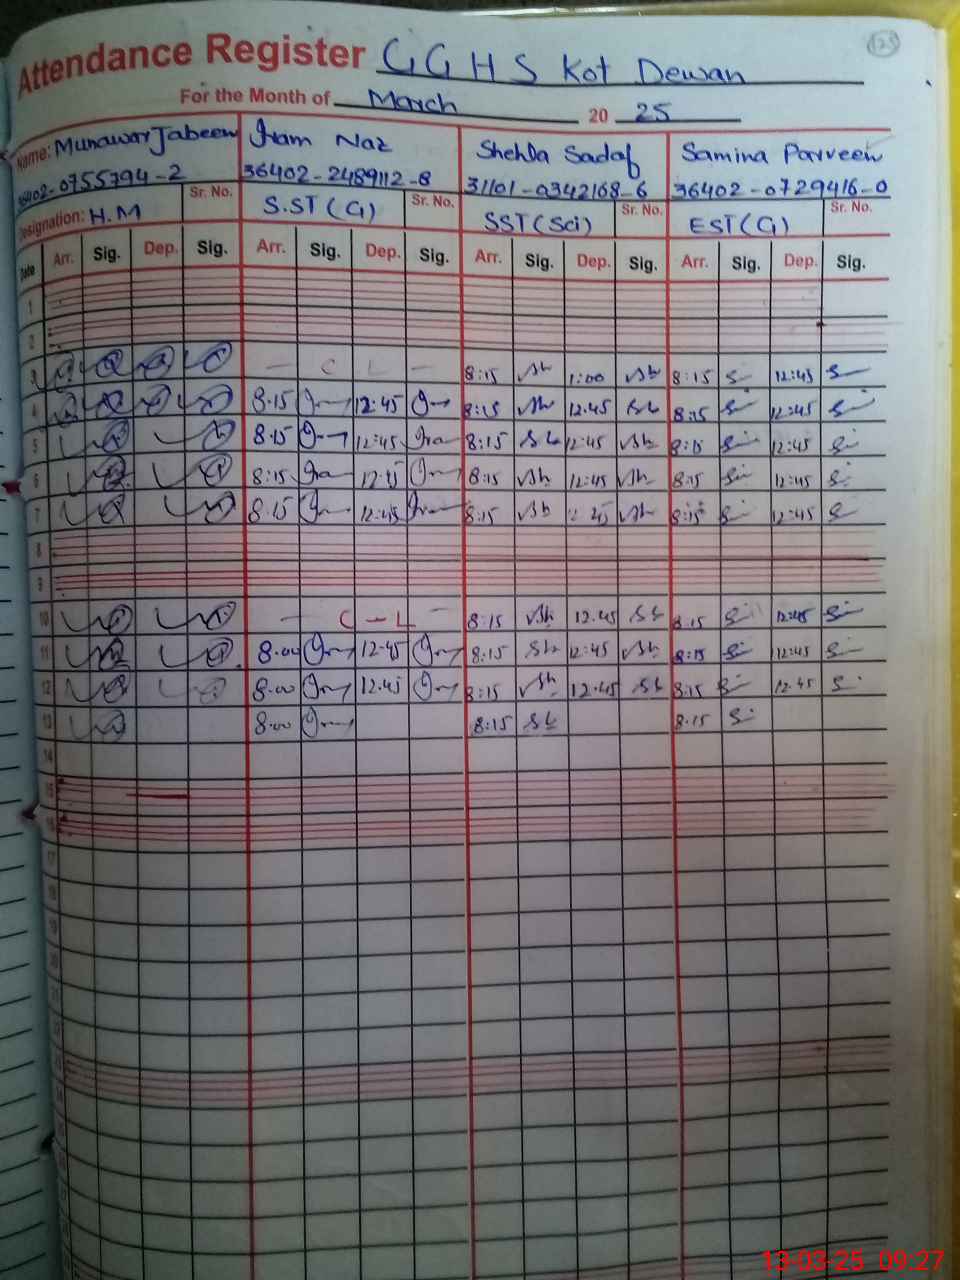 125
Attendance Register GGHS Kot Dewan
For the Month of March 20 25
Name: Munawar Jabeen Iram Naz Shehla Sadaf Samina Parveen
36402-0755794-2 36402-2489112-8 31101-0342168-6 36402-0729416-0
Designation: H.M Sr. No. S.ST(G) Sr. No. SST(Sci) Sr. No. EST(G) Sr. No.
Date Arr. Sig. Dep. Sig. Arr. Sig. Dep. Sig. Arr. Sig. Dep. Sig. Arr. Sig. Dep. Sig.
1
2
3 — C L — 8:15 Sh 1:00 Sh 8:15 12:45
4 8.15 12.45 8:15 Sh 12.45 Sh 8:15 12:45
5 8.15 12:45 8:15 Sh 12:45 Sh 8:15 12:45
6 8:15 12:45 8:15 Sh 12:45 Sh 8:15 12:45
7 8.15 12:45 8:15 Sh 45 Sh 8:15 12:45
8
9
10 — C - L — 8:15 Sh 12.45 Sh 8.15 12:45
11 8.00 12.45 8:15 Sh 12:45 Sh 8:15 12:45
12 8.00 12.45 8:15 Sh 12.45 Sh 8:15 12.45
13 8.00 8:15 Sh 8.15
14
15
16
17
18
19
20
21
22
23
24
13-03-25 09:27